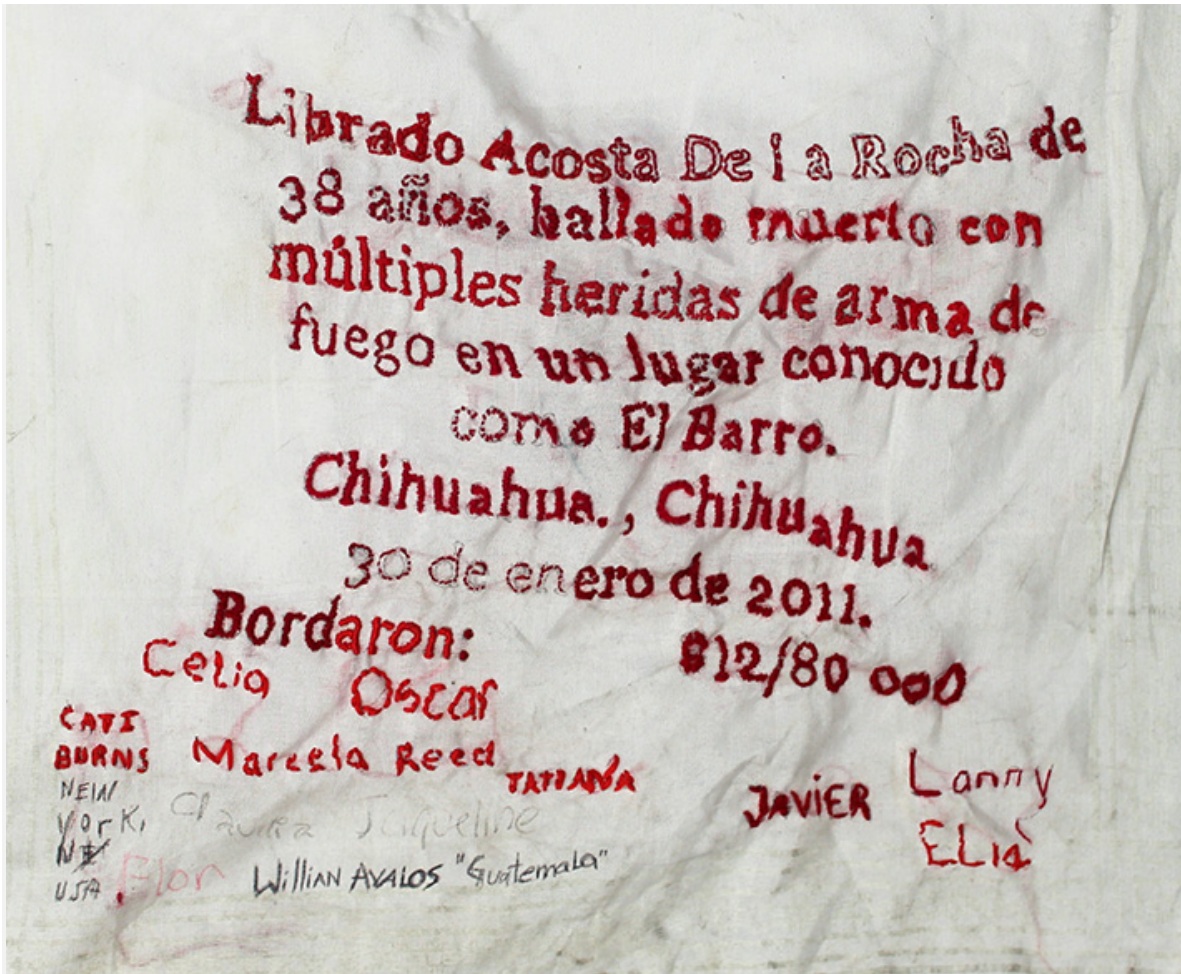 Librado Acosta De la Rocha de
38 años, hallado muerto con
múltiples heridas de arma de
fuego en un lugar conocido
como El Barro.
Chihuahua., Chihuahua
30 de enero de 2011.
Bordaron:
612/80 000
Celia Oscar
CATI
BURNS
NEW
YorK,
NY
USA
Marcela Reed
TATIANA
JAVIER
Lanny
ELia
Jaqueline
Elon
WilliAN AVALOS "Guatemala"